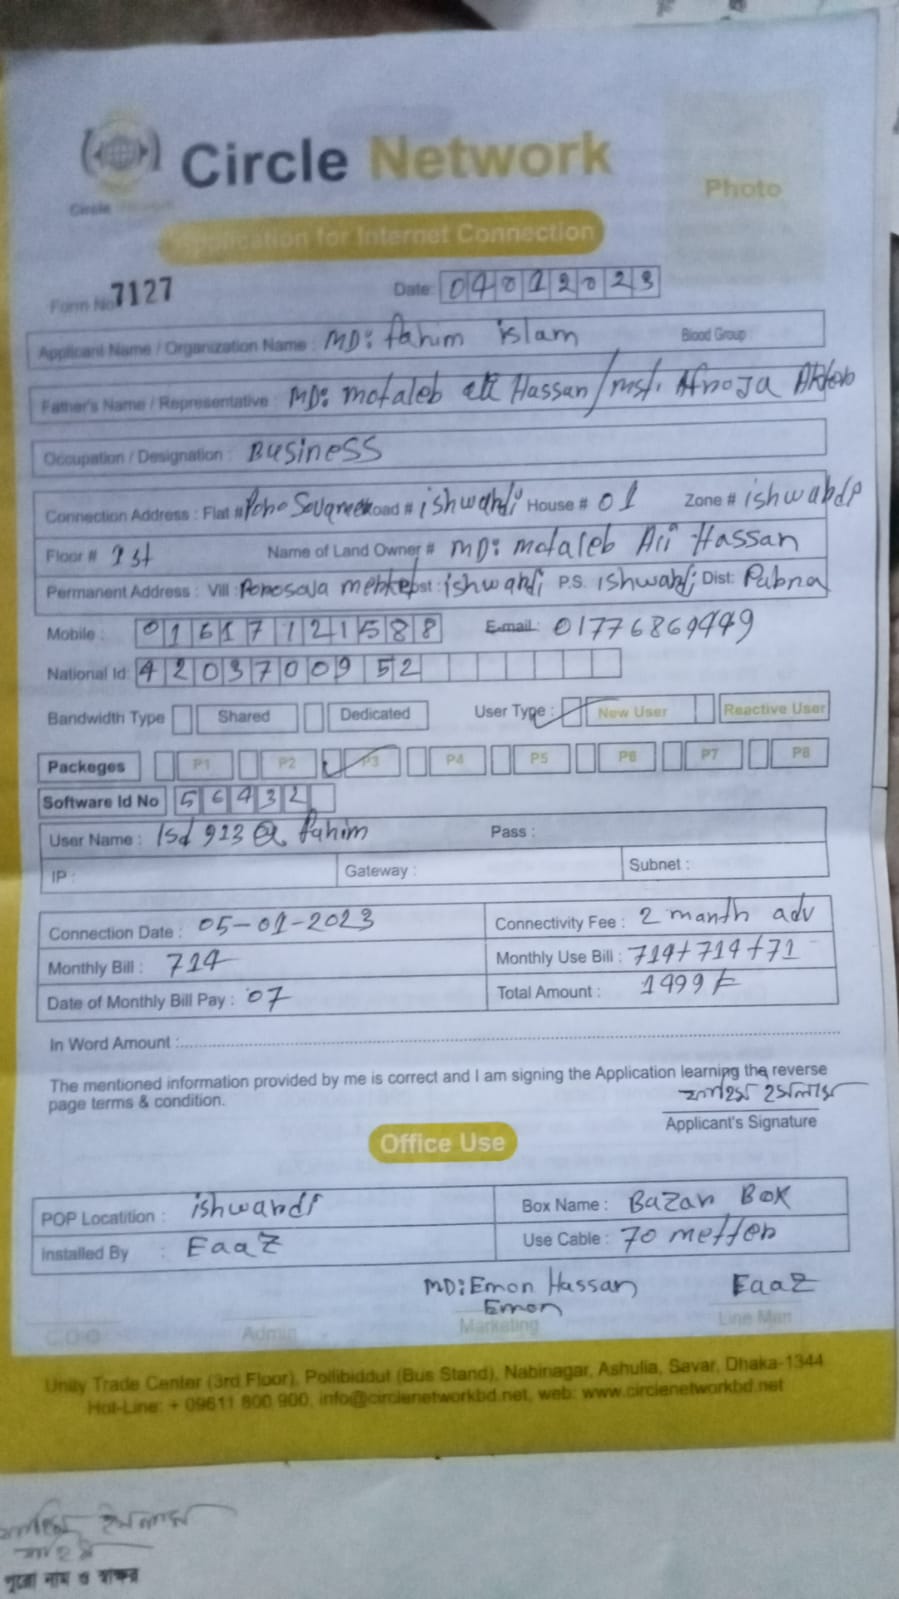 Circle Network
Photo
Circle
Application for Internet Connection
Form No 7127
Date: 04012023
Applicant Name / Organization Name : MD: fahim islam Blood Group :
Father's Name / Representative : MD: motaleb ali Hassan/mst. Afroja Akter
Occupation / Designation : Business
Connection Address : Flat # Road # ishwardi House # 01 Zone # ishwardi
Floor # 1st Name of Land Owner # MD: motaleb Ali Hassan
Permanent Address : Vill : Post : ishwardi P.S. ishwardi Dist: Pabna
Mobile : 01617121588 E-mail : 01776869449
National Id: 4203700952
Bandwidth Type Shared Dedicated User Type : New User Reactive User
Packeges P1 P2 P3 P4 P5 P6 P7 P8
Software Id No 56432
User Name : Isd 923 @ fahim Pass :
IP : Gateway : Subnet :
Connection Date : 05-01-2023 Connectivity Fee : 2 manth adv
Monthly Bill : 714 Monthly Use Bill : 714+714+71
Date of Monthly Bill Pay : 07 Total Amount : 1499
In Word Amount :
The mentioned information provided by me is correct and I am signing the Application learning the reverse
page terms & condition.
Applicant's Signature
Office Use
POP Locatition : ishwardi Box Name : Bazar Box
Installed By : Eaaz Use Cable : 70 metter
MD: Emon Hassan Eaaz
Emon
C.O.O Admin Marketing Line Man
Unity Trade Center (3rd Floor), Pollibiddut (Bus Stand), Nabinagar, Ashulia, Savar, Dhaka-1344
Hot-Line: + 09611 800 900, info@circlenetworkbd.net, web: www.circlenetworkbd.net
পুরো নাম ও স্বাক্ষর